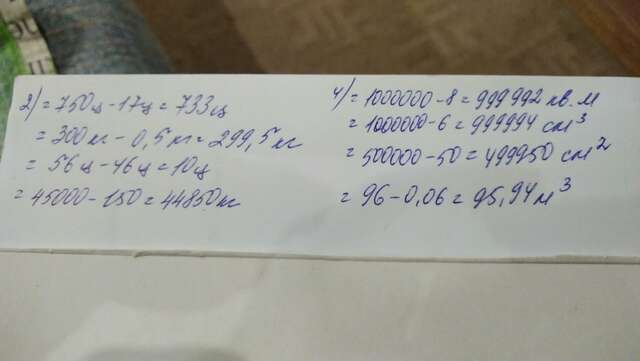 2) = 750ц - 17ц = 733ц
= 300кг - 0,5кг = 299,5кг
= 56ц - 46ц = 10ц
= 45000 - 150 = 44850кг
4) = 1000000 - 8 = 999992 кв.м
= 1000000 - 6 = 999994 см³
= 500000 - 50 = 499950 см²
= 96 - 0,06 = 95,94м³